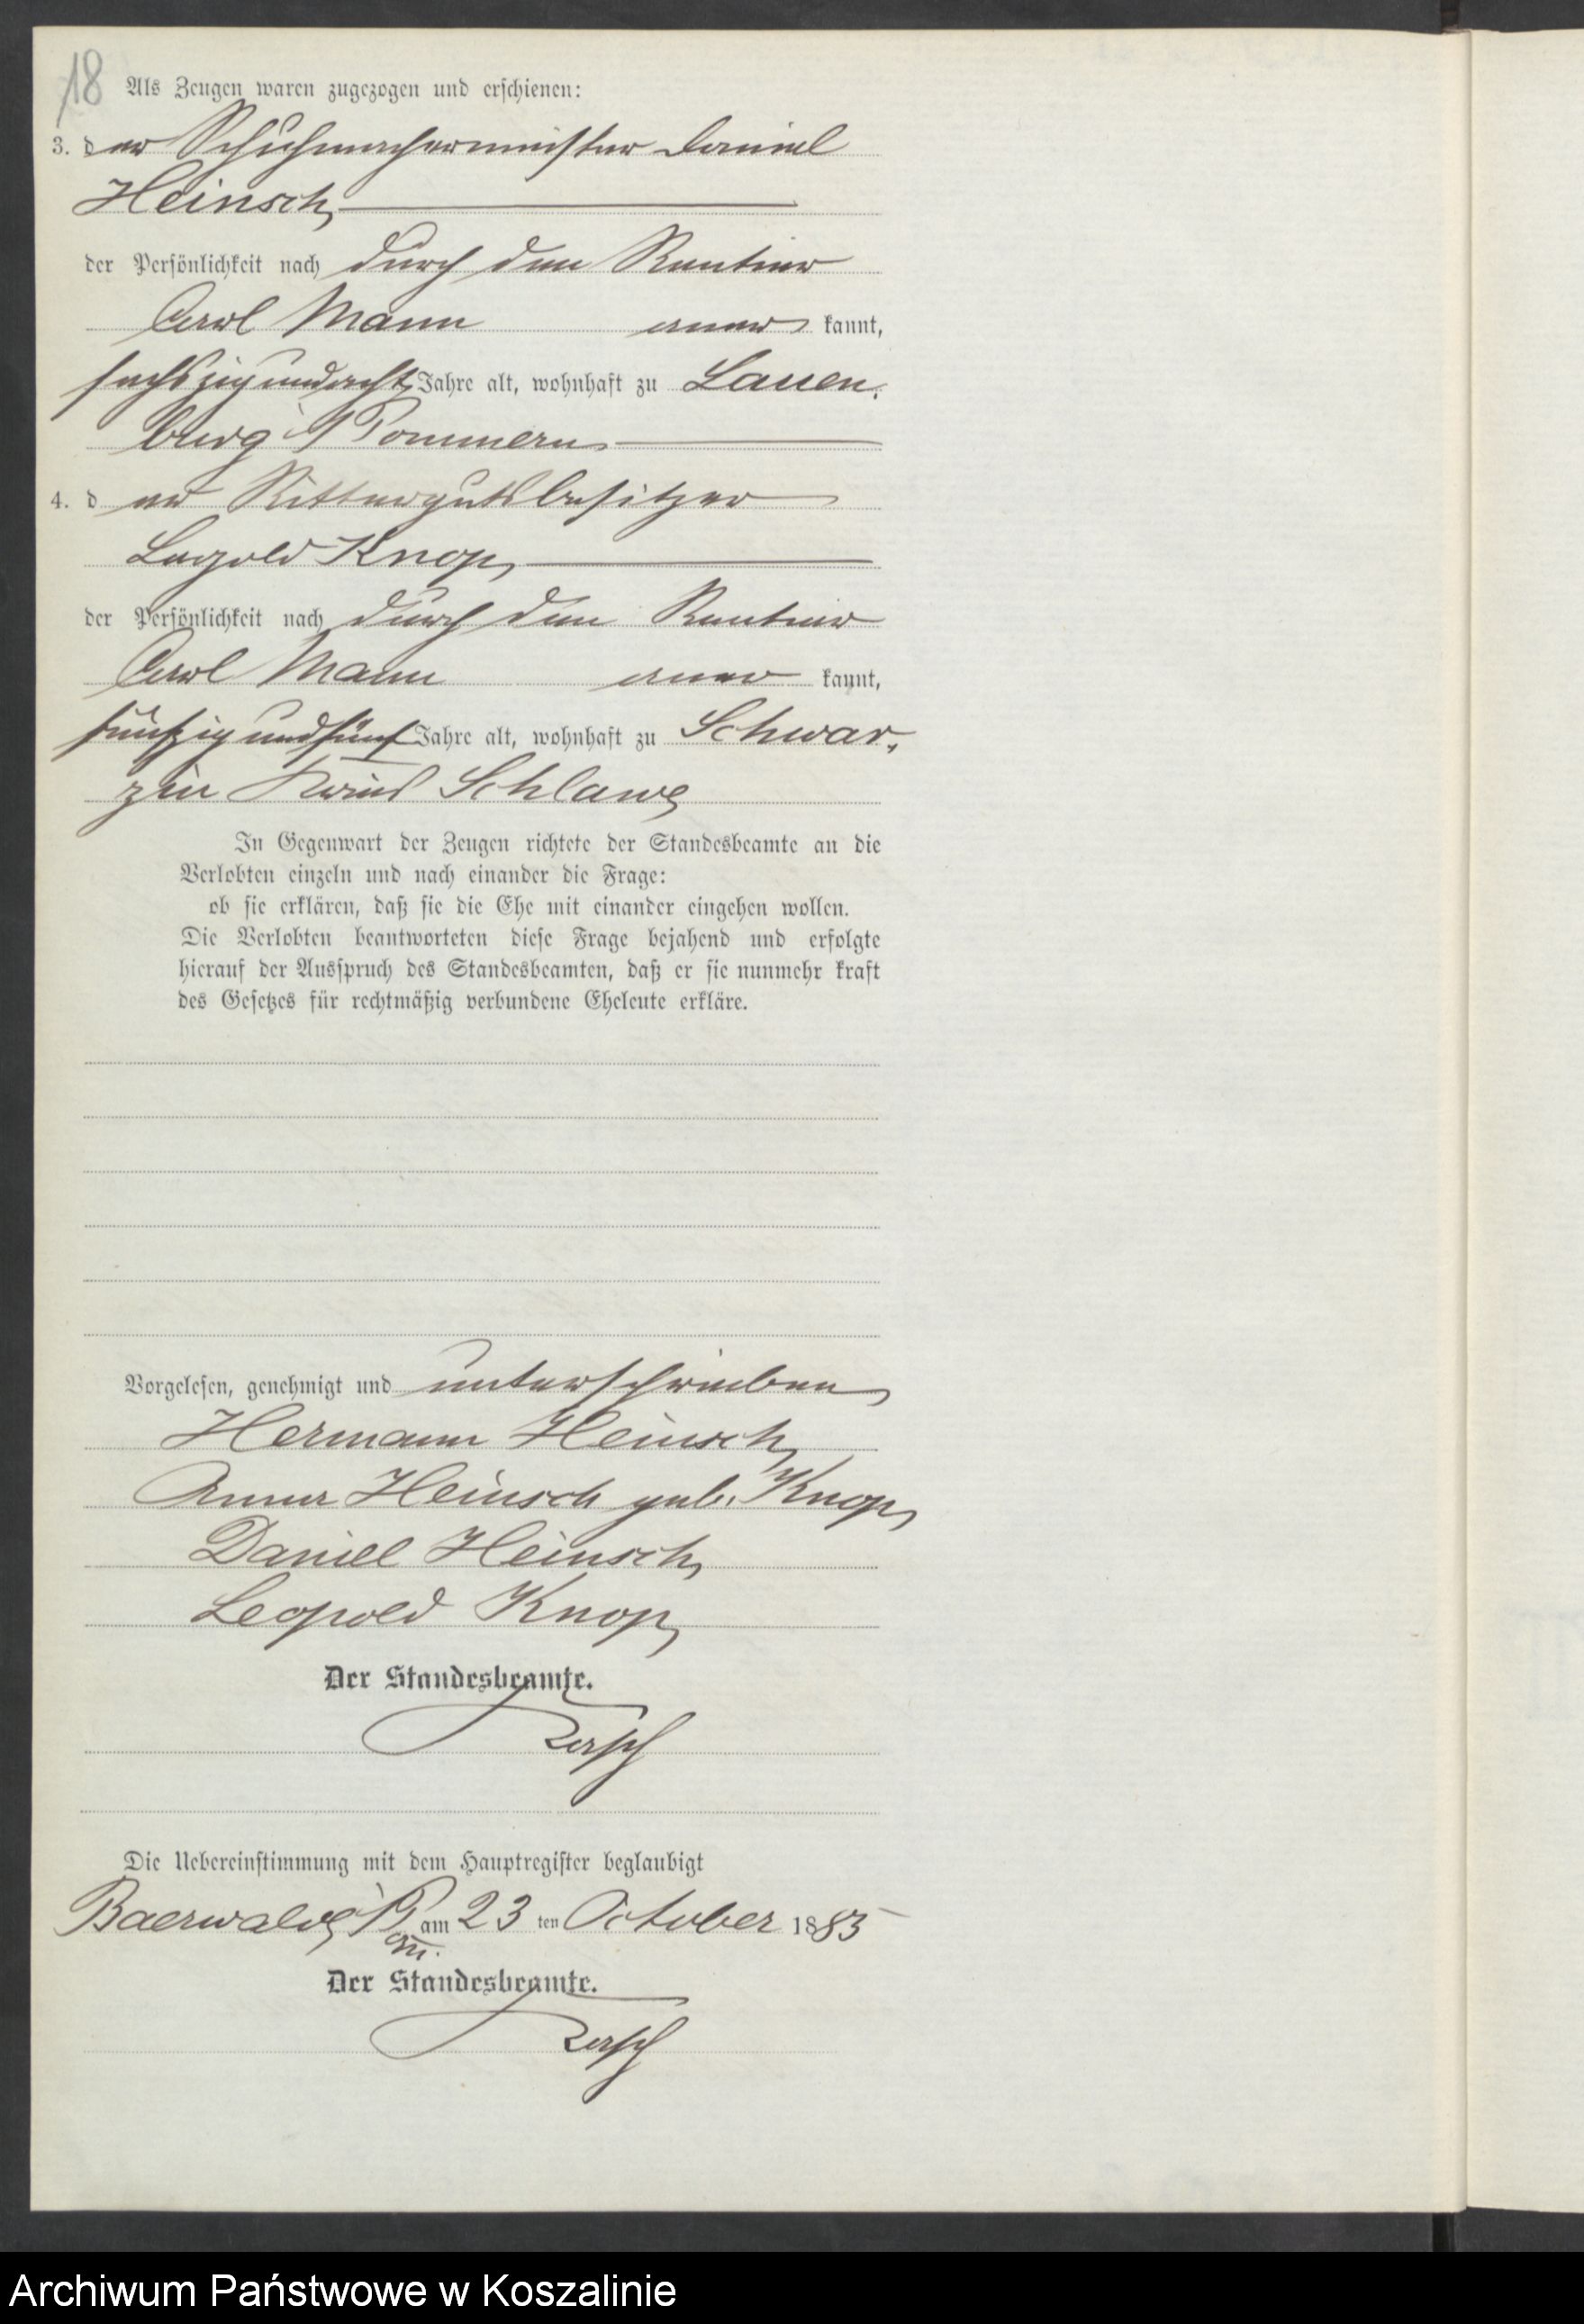 18
Als Zeugen waren zugezogen und erschienen:
3. der Schuhmachermeister Daniel
Heinsch,
der Persönlichkeit nach durch den Rentier
Carl Mann aner kannt,
sechszigundacht Jahre alt, wohnhaft zu Lauen-
burg i/Pommern
4. d er Rittergutsbesitzer
Leopold Knop,
der Persönlichkeit nach durch den Rentier
Carl Mann aner kannt,
fünfzigundfünf Jahre alt, wohnhaft zu Schwar-
zin Kreis Schlawe
In Gegenwart der Zeugen richtete der Standesbeamte an die
Verlobten einzeln und nach einander die Frage:
ob sie erklären, daß sie die Ehe mit einander eingehen wollen.
Die Verlobten beantworteten diese Frage bejahend und erfolgte
hierauf der Ausspruch des Standesbeamten, daß er sie nunmehr kraft
des Gesetzes für rechtmäßig verbundene Eheleute erkläre.
Vorgelesen, genehmigt und unterschrieben
Hermann Heinsch
Anna Heinsch geb. Knop
Daniel Heinsch
Leopold Knop
Der Standesbeamte.
Die Uebereinstimmung mit dem Hauptregister beglaubigt
Baerwalde i/P am 23 ten October 1883
Der Standesbeamte.
Archiwum Państwowe w Koszalinie